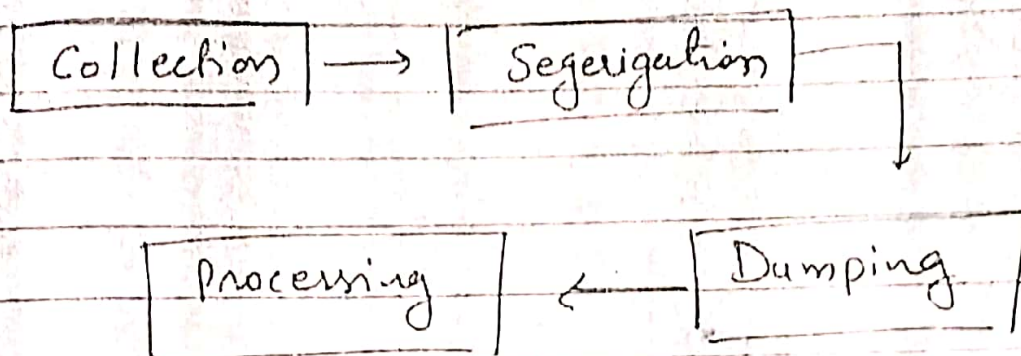 Collection → Segerigation
Processing ← Dumping